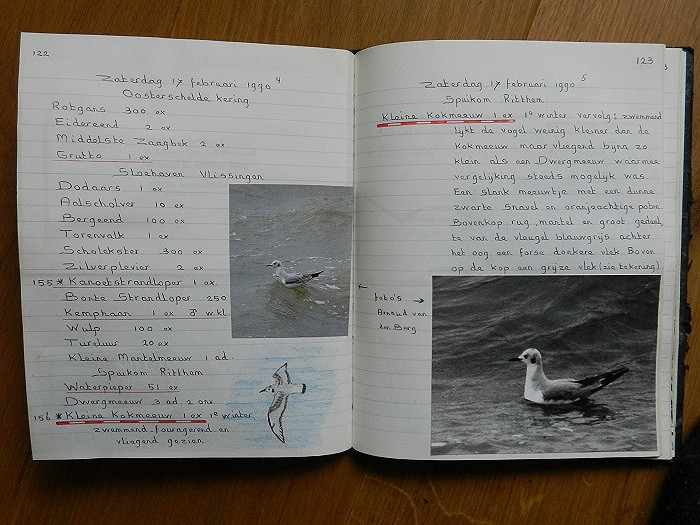 122
Zaterdag 17 februari 1990 4
Oosterschelde kering
Rotgans 300 ex
Eidereend 2 ex
Middelste Zaagbek 2 ex
Grutto 1 ex
Sloehaven Vlissingen
Dodaars 1 ex
Aalscholver 10 ex
Bergeend 100 ex
Torenvalk 1 ex
Scholekster 300 ex
Zilverplevier 2 ex
155 * Kanoetstrandloper 1 ex
Bonte Strandloper 250
Kemphaan 1 ex ♂ wkl
Wulp 100 ex
Tureluur 20 ex
Kleine Mantelmeeuw 1 ad
Spuikom Ritthem
Waterpieper 51 ex
Dwergmeeuw 3 ad 2 onv
156 * Kleine Kokmeeuw 1 ex 1e winter
zwemmend, fouragerend en
vliegend gezien
123
Zaterdag 17 februari 1990 5
Spuikom Ritthem
Kleine Kokmeeuw 1 ex 1e winter vervolg: zwemmend
lijkt de vogel weinig kleiner dan de
Kokmeeuw maar vliegend bijna zo
klein als een Dwergmeeuw waarmee
vergelijking steeds mogelijk was.
Een slank meeuwtje met een dunne
zwarte snavel en oranjeachtige poten.
Bovenkop, rug, mantel en groot gedeel
te van de vleugel blauwgrijs, achter
het oog een forse donkere vlek. Boven
op de kop een grijze vlek (zie tekening)
← foto's →
Arnoud van
den Berg